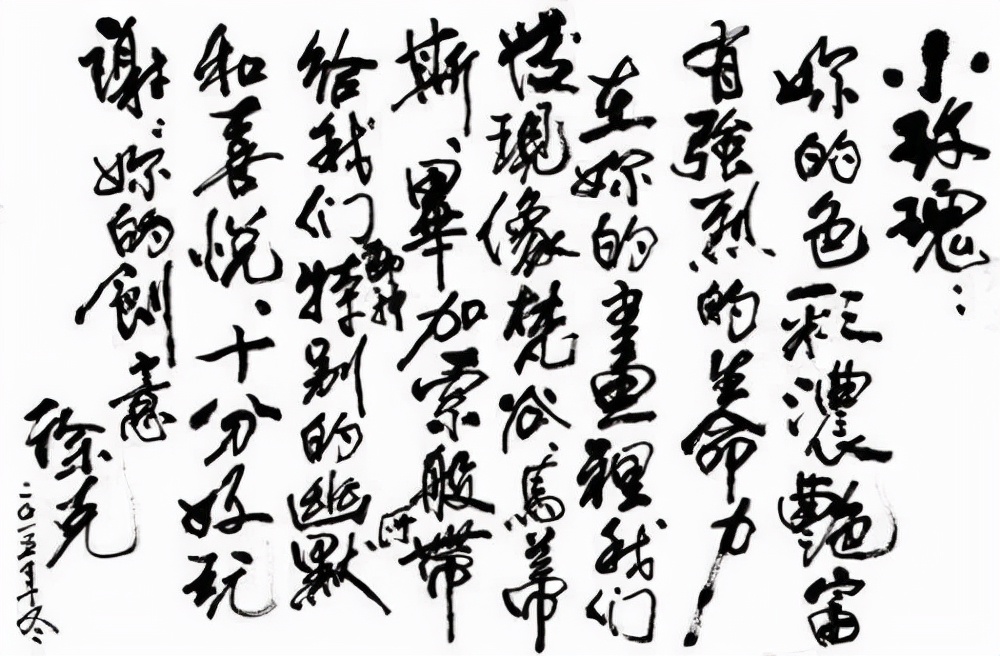 小玫瑰：
妳的色彩濃艷富
有強烈的生命力
在妳的畫裡我们
發現像梵谷、馬蒂
斯、畢加索般所帶
给我们那种特别的幽默
和喜悦、十分好玩
謝：妳的創意
徐克
二〇一五年冬